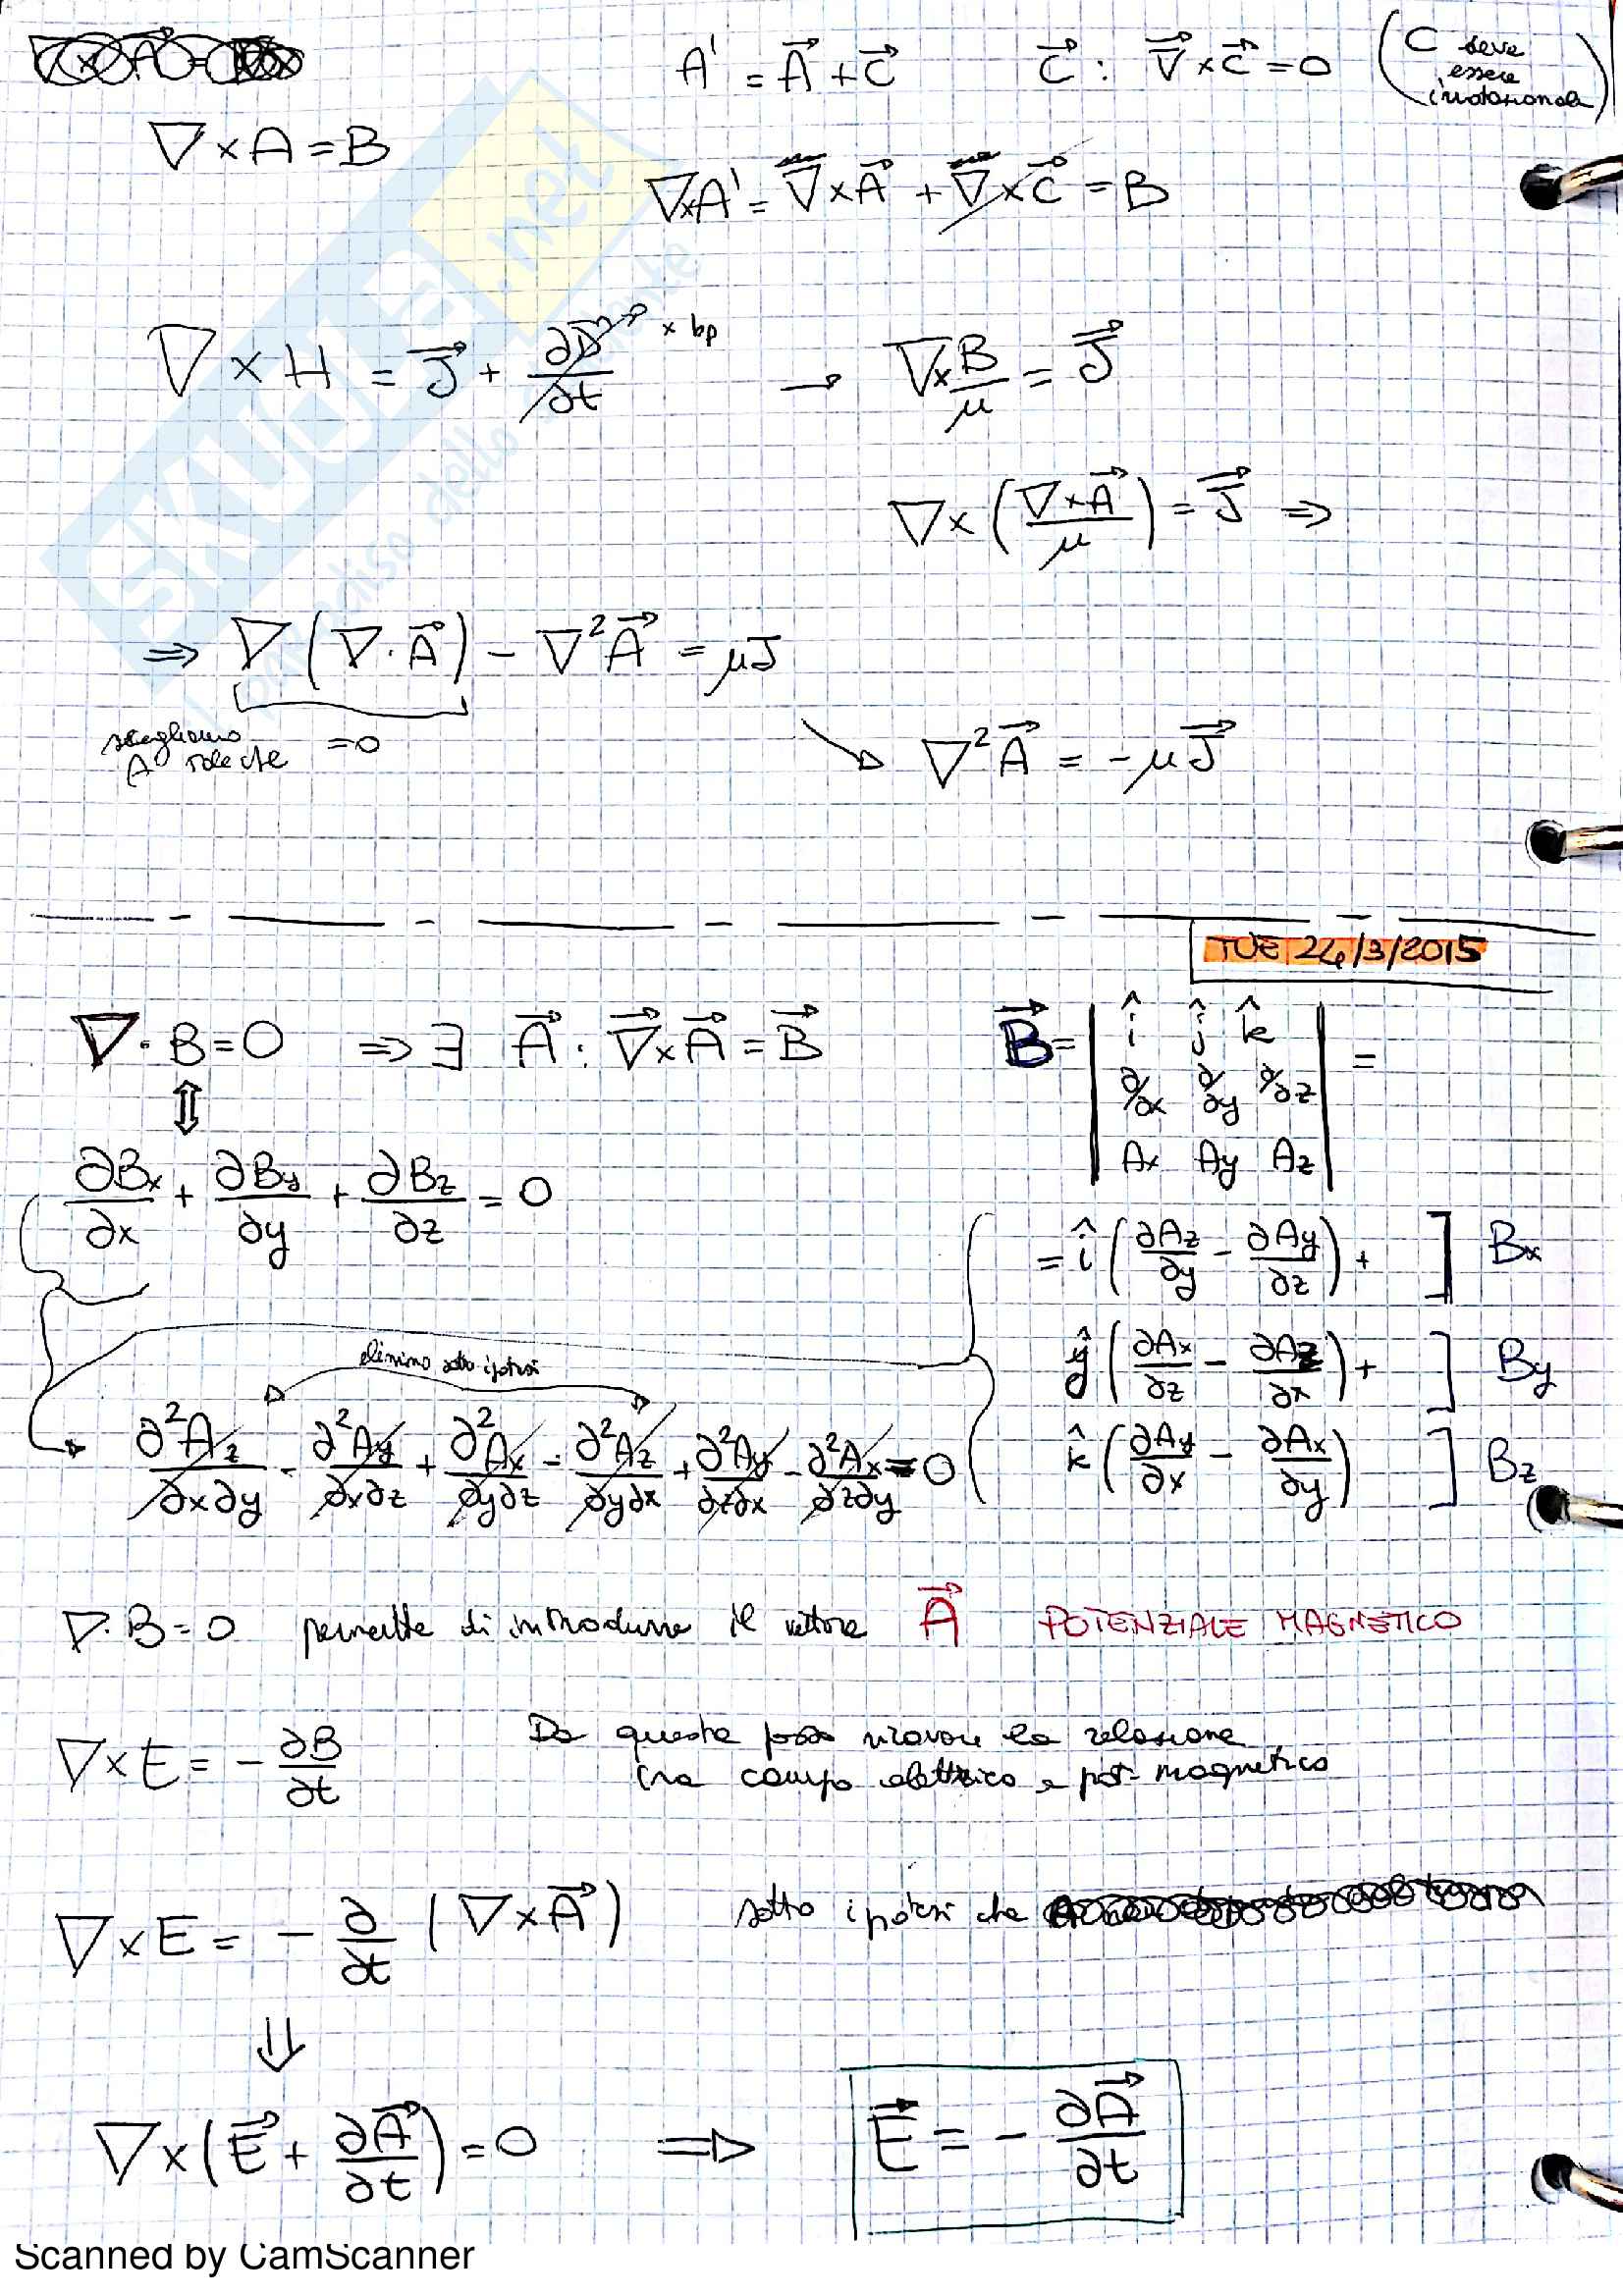 A' = A⃗ + C⃗    C⃗ : ∇⃗ × C⃗ = 0 (C deve essere irrotazionale)
∇ × A = B
∇×A' = ∇⃗ × A⃗ + ∇⃗ × C⃗ = B
∇ × H = J⃗ + ∂D⃗/∂t → 0 × bp → ∇ × B/μ = J⃗
∇ × (∇ × A⃗ / μ) = J⃗ ⇒
⇒ ∇(∇ · A⃗) − ∇²A⃗ = μJ
scegliamo A tale che = 0
↘ ∇²A⃗ = −μJ⃗
TUE 24/3/2015
∇ · B = 0 ⇒ ∃ A⃗ : ∇⃗ × A⃗ = B⃗
⇕
∂Bx/∂x + ∂By/∂y + ∂Bz/∂z = 0
B⃗ = | î ĵ k̂ | =
| ∂/∂x ∂/∂y ∂/∂z |
| Ax Ay Az |
= î (∂Az/∂y − ∂Ay/∂z) + ] Bx
ŷ (∂Ax/∂z − ∂Az/∂x) + ] By
k̂ (∂Ay/∂x − ∂Ax/∂y) ] Bz
elimino sotto ipotesi
∂²Az/∂x∂y − ∂²Ay/∂x∂z + ∂²Ax/∂y∂z − ∂²Az/∂y∂x + ∂²Ay/∂z∂x − ∂²Ax/∂z∂y = 0
∇ · B = 0 permette di introdurre il vettore A⃗ POTENZIALE MAGNETICO
∇ × E = − ∂B/∂t    Da questa posso ricavare la relazione
tra campo elettrico e pot. magnetico
∇ × E = − ∂/∂t (∇ × A⃗)    sotto ipotesi che
⇓
∇ × (E⃗ + ∂A⃗/∂t) = 0 ⇒ E⃗ = − ∂A⃗/∂t
Scanned by CamScanner
SKUOLA.net